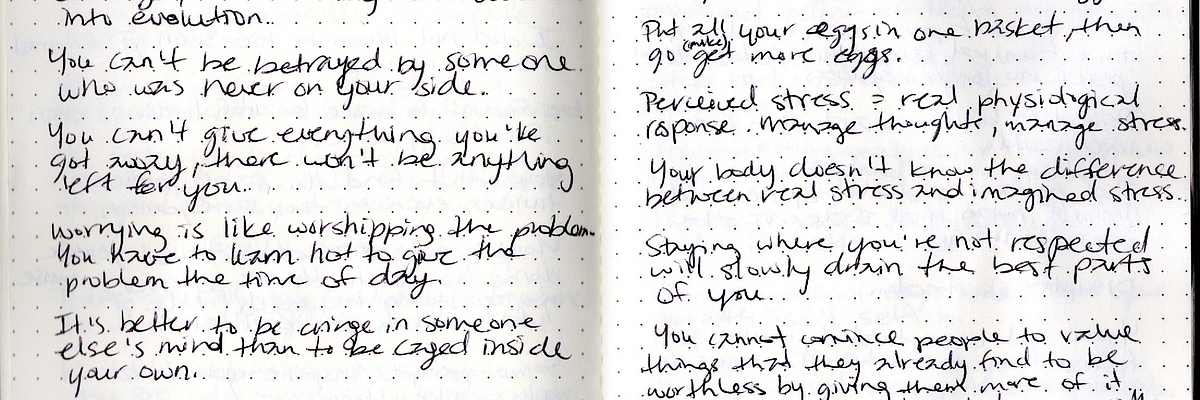 into evolution.
You can't be betrayed by someone
who was never on your side.
You can't give everything you've
got away, there won't be anything
left for you.
worrying is like worshipping the problem.
You have to learn not to give the
problem the time of day.
It's better to be cringe in someone
else's mind than to be caged inside
your own.
Put all your eggs in one basket, then
(make)
go get more eggs.
Perceived stress = real physiological
response. Manage thoughts, manage stress.
Your body doesn't know the difference
between real stress and imagined stress.
Staying where you're not respected
will slowly drain the best parts
of you.
You cannot convince people to value
things that they already find to be
worthless by giving them more of it.